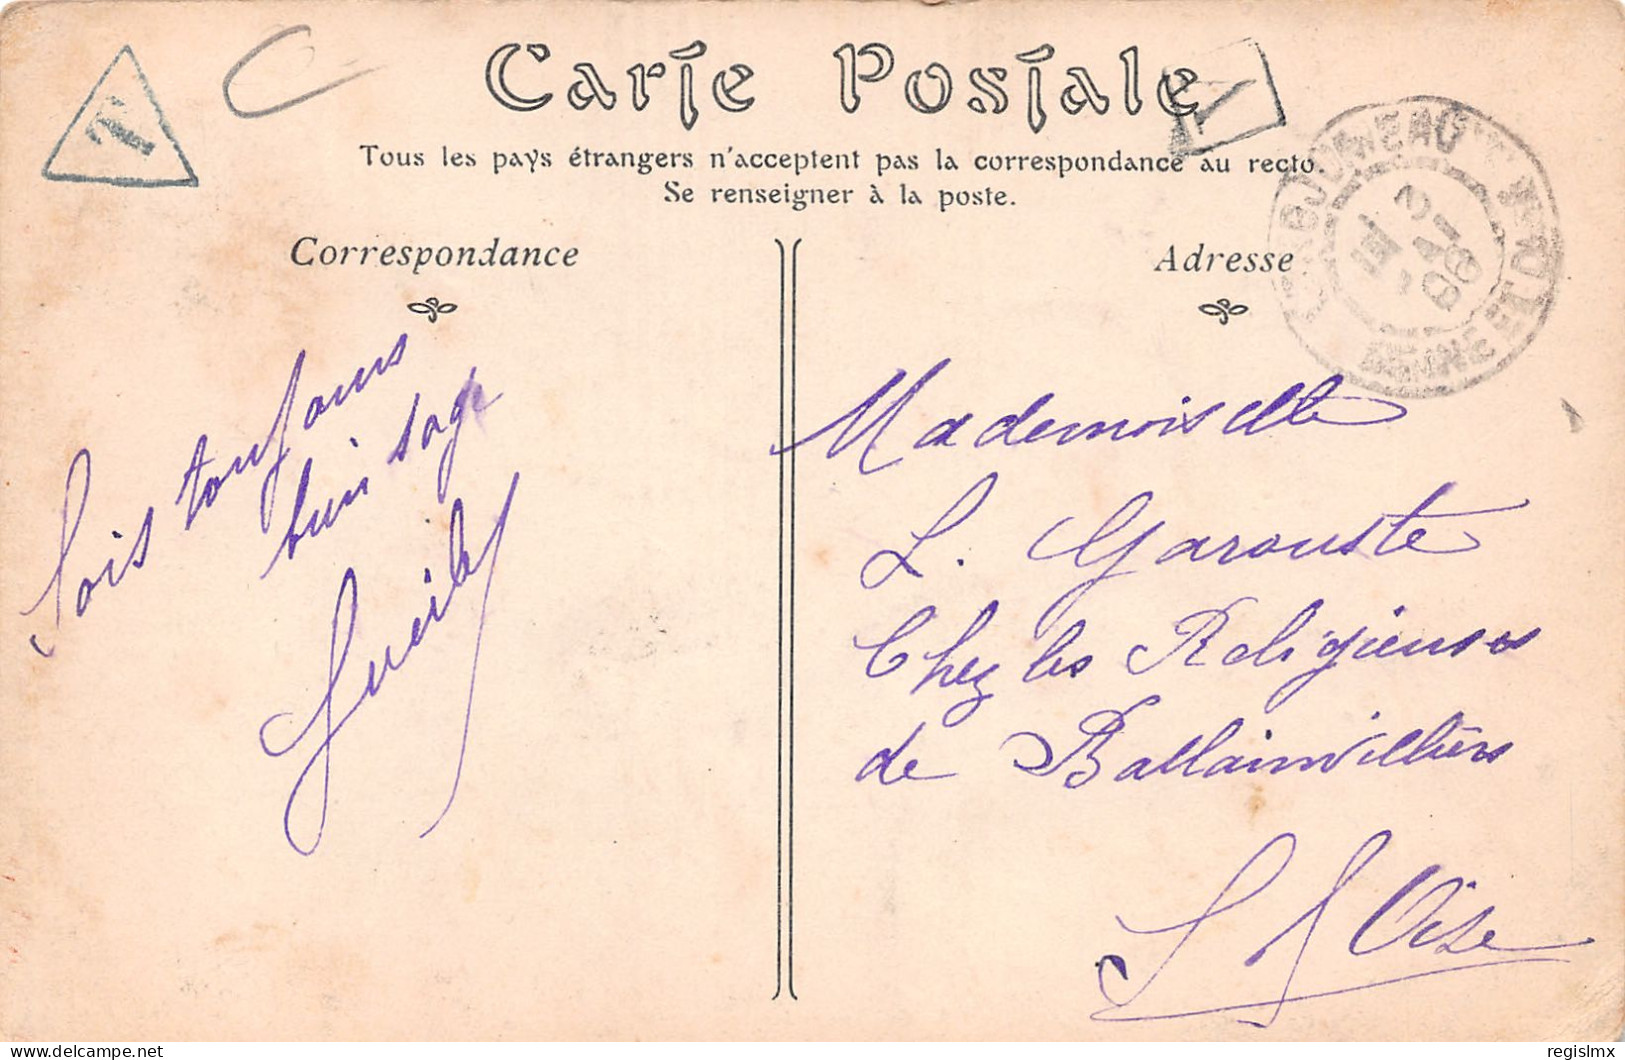 T
Carte Postale
T
Tous les pays étrangers n'acceptent pas la correspondance au recto.
Se renseigner à la poste.
LONGJUMEAU
SEINE ET OISE
Correspondance
Sois toujours
bien sage
Adresse
Mademoiselle
L. Garouste
Chez les Religieuses
de Ballainvilliers
S & Oise
delcampe.net
regislmx